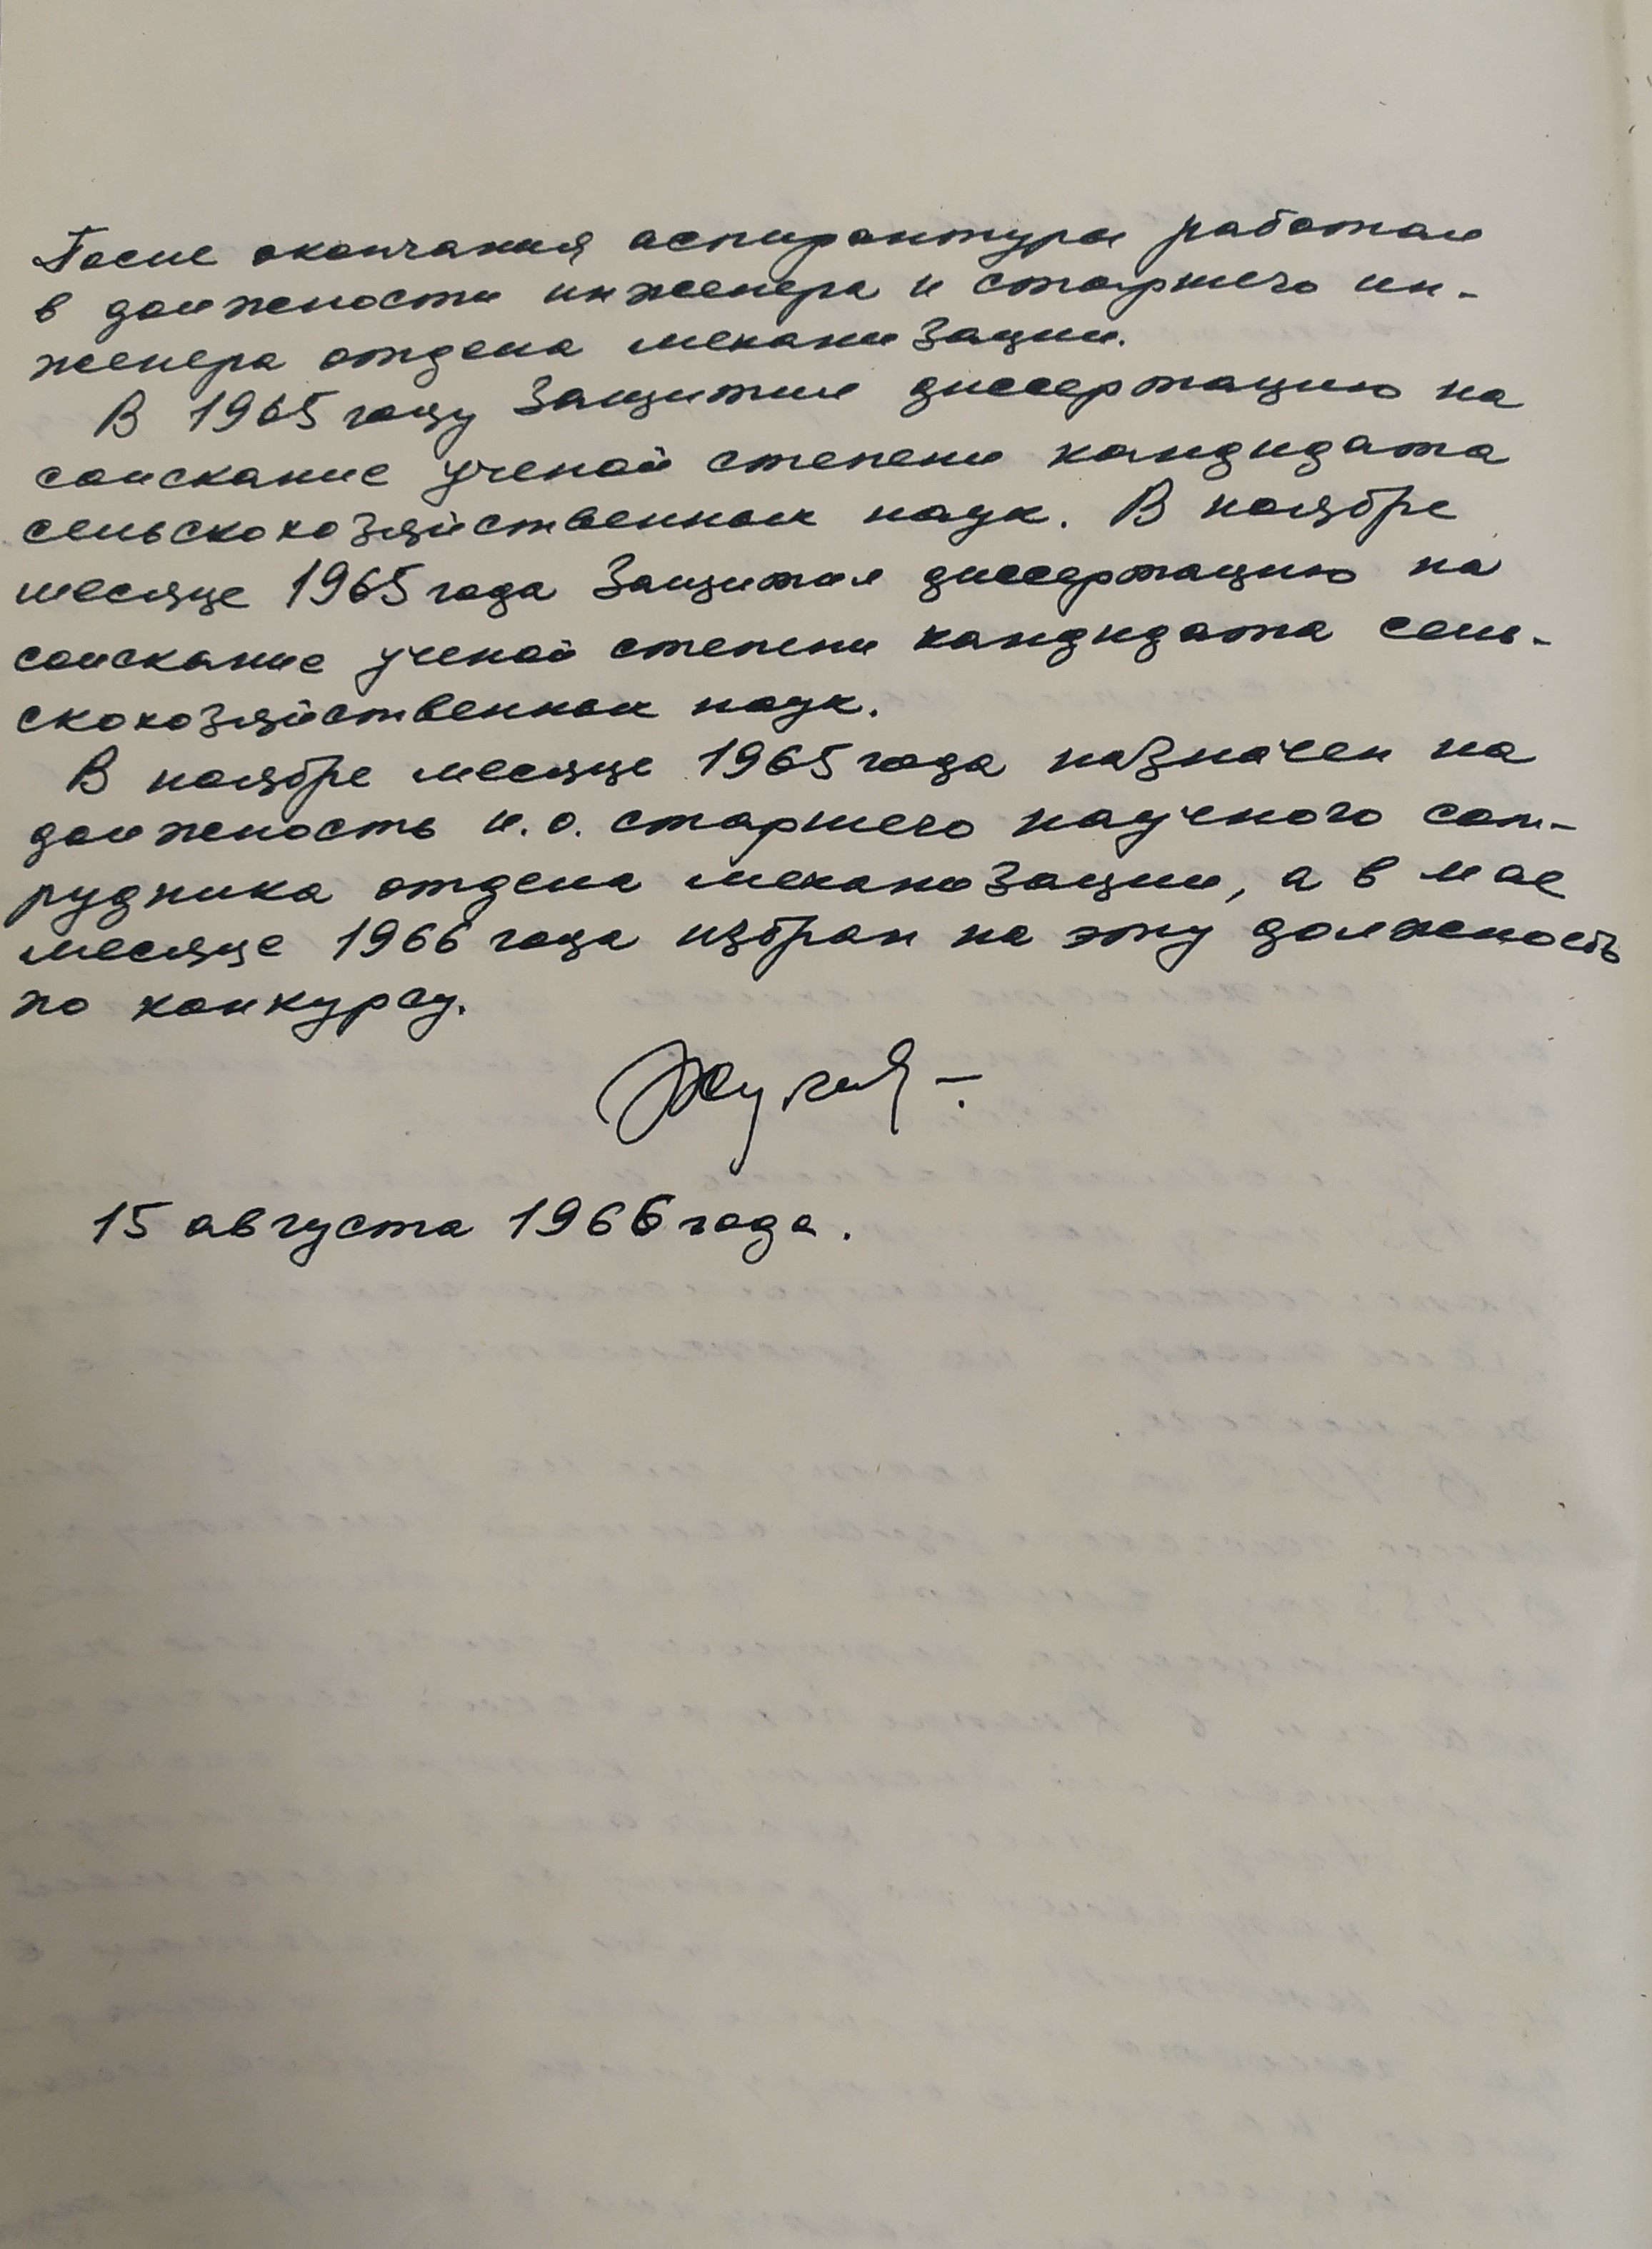 После окончания аспирантуры работал
в должности инженера и старшего ин-
женера отдела механизации.
В 1965 году защитил диссертацию на
соискание ученой степени кандидата
сельскохозяйственных наук. В ноябре
месяце 1965 года защитил диссертацию на
соискание ученой степени кандидата сель-
скохозяйственных наук.
В ноябре месяце 1965 года назначен на
должность и.о. старшего научного сот-
рудника отдела механизации, а в мае
месяце 1966 года избран на эту должность
по конкурсу.
15 августа 1966 года.